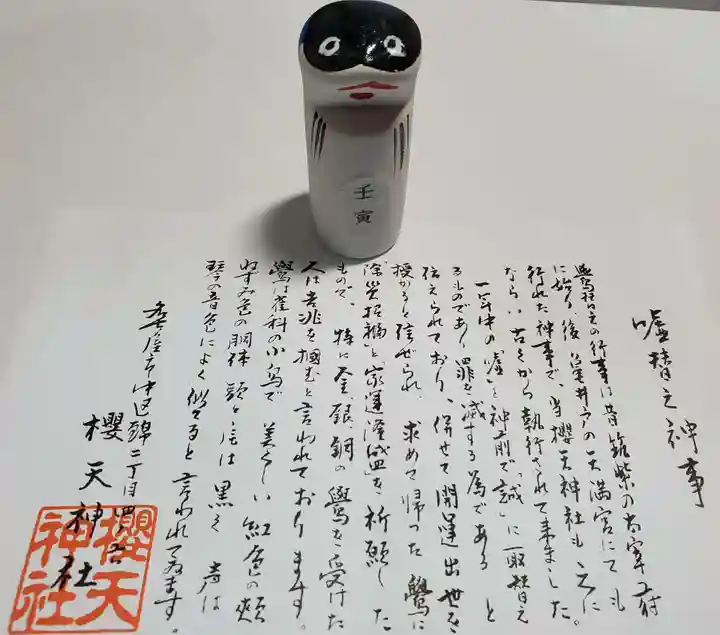 壬寅
嘘替之神事
鷽替之行事は昔筑紫の太宰府
に始り後亀井戸の天満宮にても
行れた神事で、当櫻天神社も之に
ならい古くから執行されて来ました。
一年中の嘘を神前で「誠」に取替え
るものであり罪を滅する為である と
伝えられており、併せて開運出世を
授かると伝ぜられ、求めて帰った鷽に
「除災招福」と「家運隆盛」を祈願した
もので、特に金、銀、銅の鷽を受けた
人は吉兆を掴むと言われております。
鷽は雀科の小鳥で 美くしい紅色の頬
ねずみ色の胴体 頭と は黒く 声は
琴の音色によく似てると言われてゐます。
名古屋市中区錦二丁目四ノ五
櫻天神社
櫻天神社